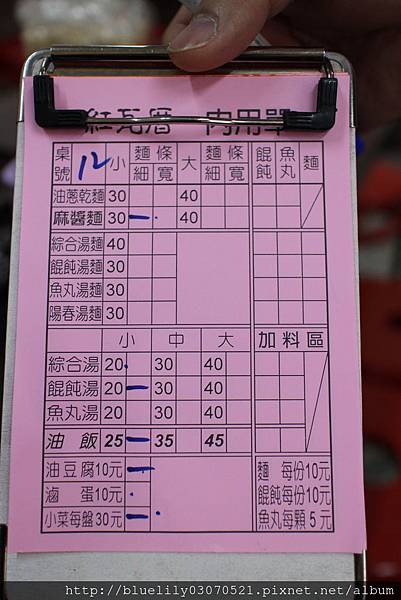 紅瓦厝 內用單
桌號 12 小 麵條 細 寬 大 麵條 細 寬 餛飩 魚丸 麵
油蔥乾麵 30 40
麻醬麵 30 一 40
綜合湯麵 40
餛飩湯麵 30
魚丸湯麵 30
陽春湯麵 30
小 中 大 加料區
綜合湯 20 30 40
餛飩湯 20 一 30 40
魚丸湯 20 30 40
油飯 25 一 35 45
油豆腐10元 一 麵 每份10元
滷蛋10元 餛飩每份10元
小菜每盤30元 一 魚丸每顆5元
http://bluelily03070521.pixnet.net/album